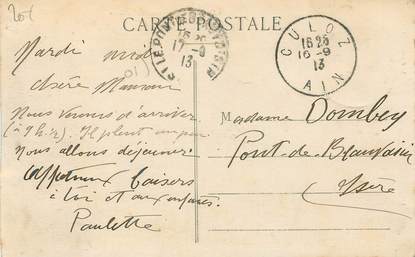 CARTE POSTALE
Mardi midi
Chère Maman
Nous venons d'arriver
(à 7 h ½). Il pleut un peu
nous allons déjeuner.
Affectueux baisers
à toi et aux
Paulette
LE PONT-DE-BEAUVOISIN
17-9
13
CULOZ
16 25
16-9
13
AIN
Madame Dombey
Pont-de-Beauvoisin
Isère